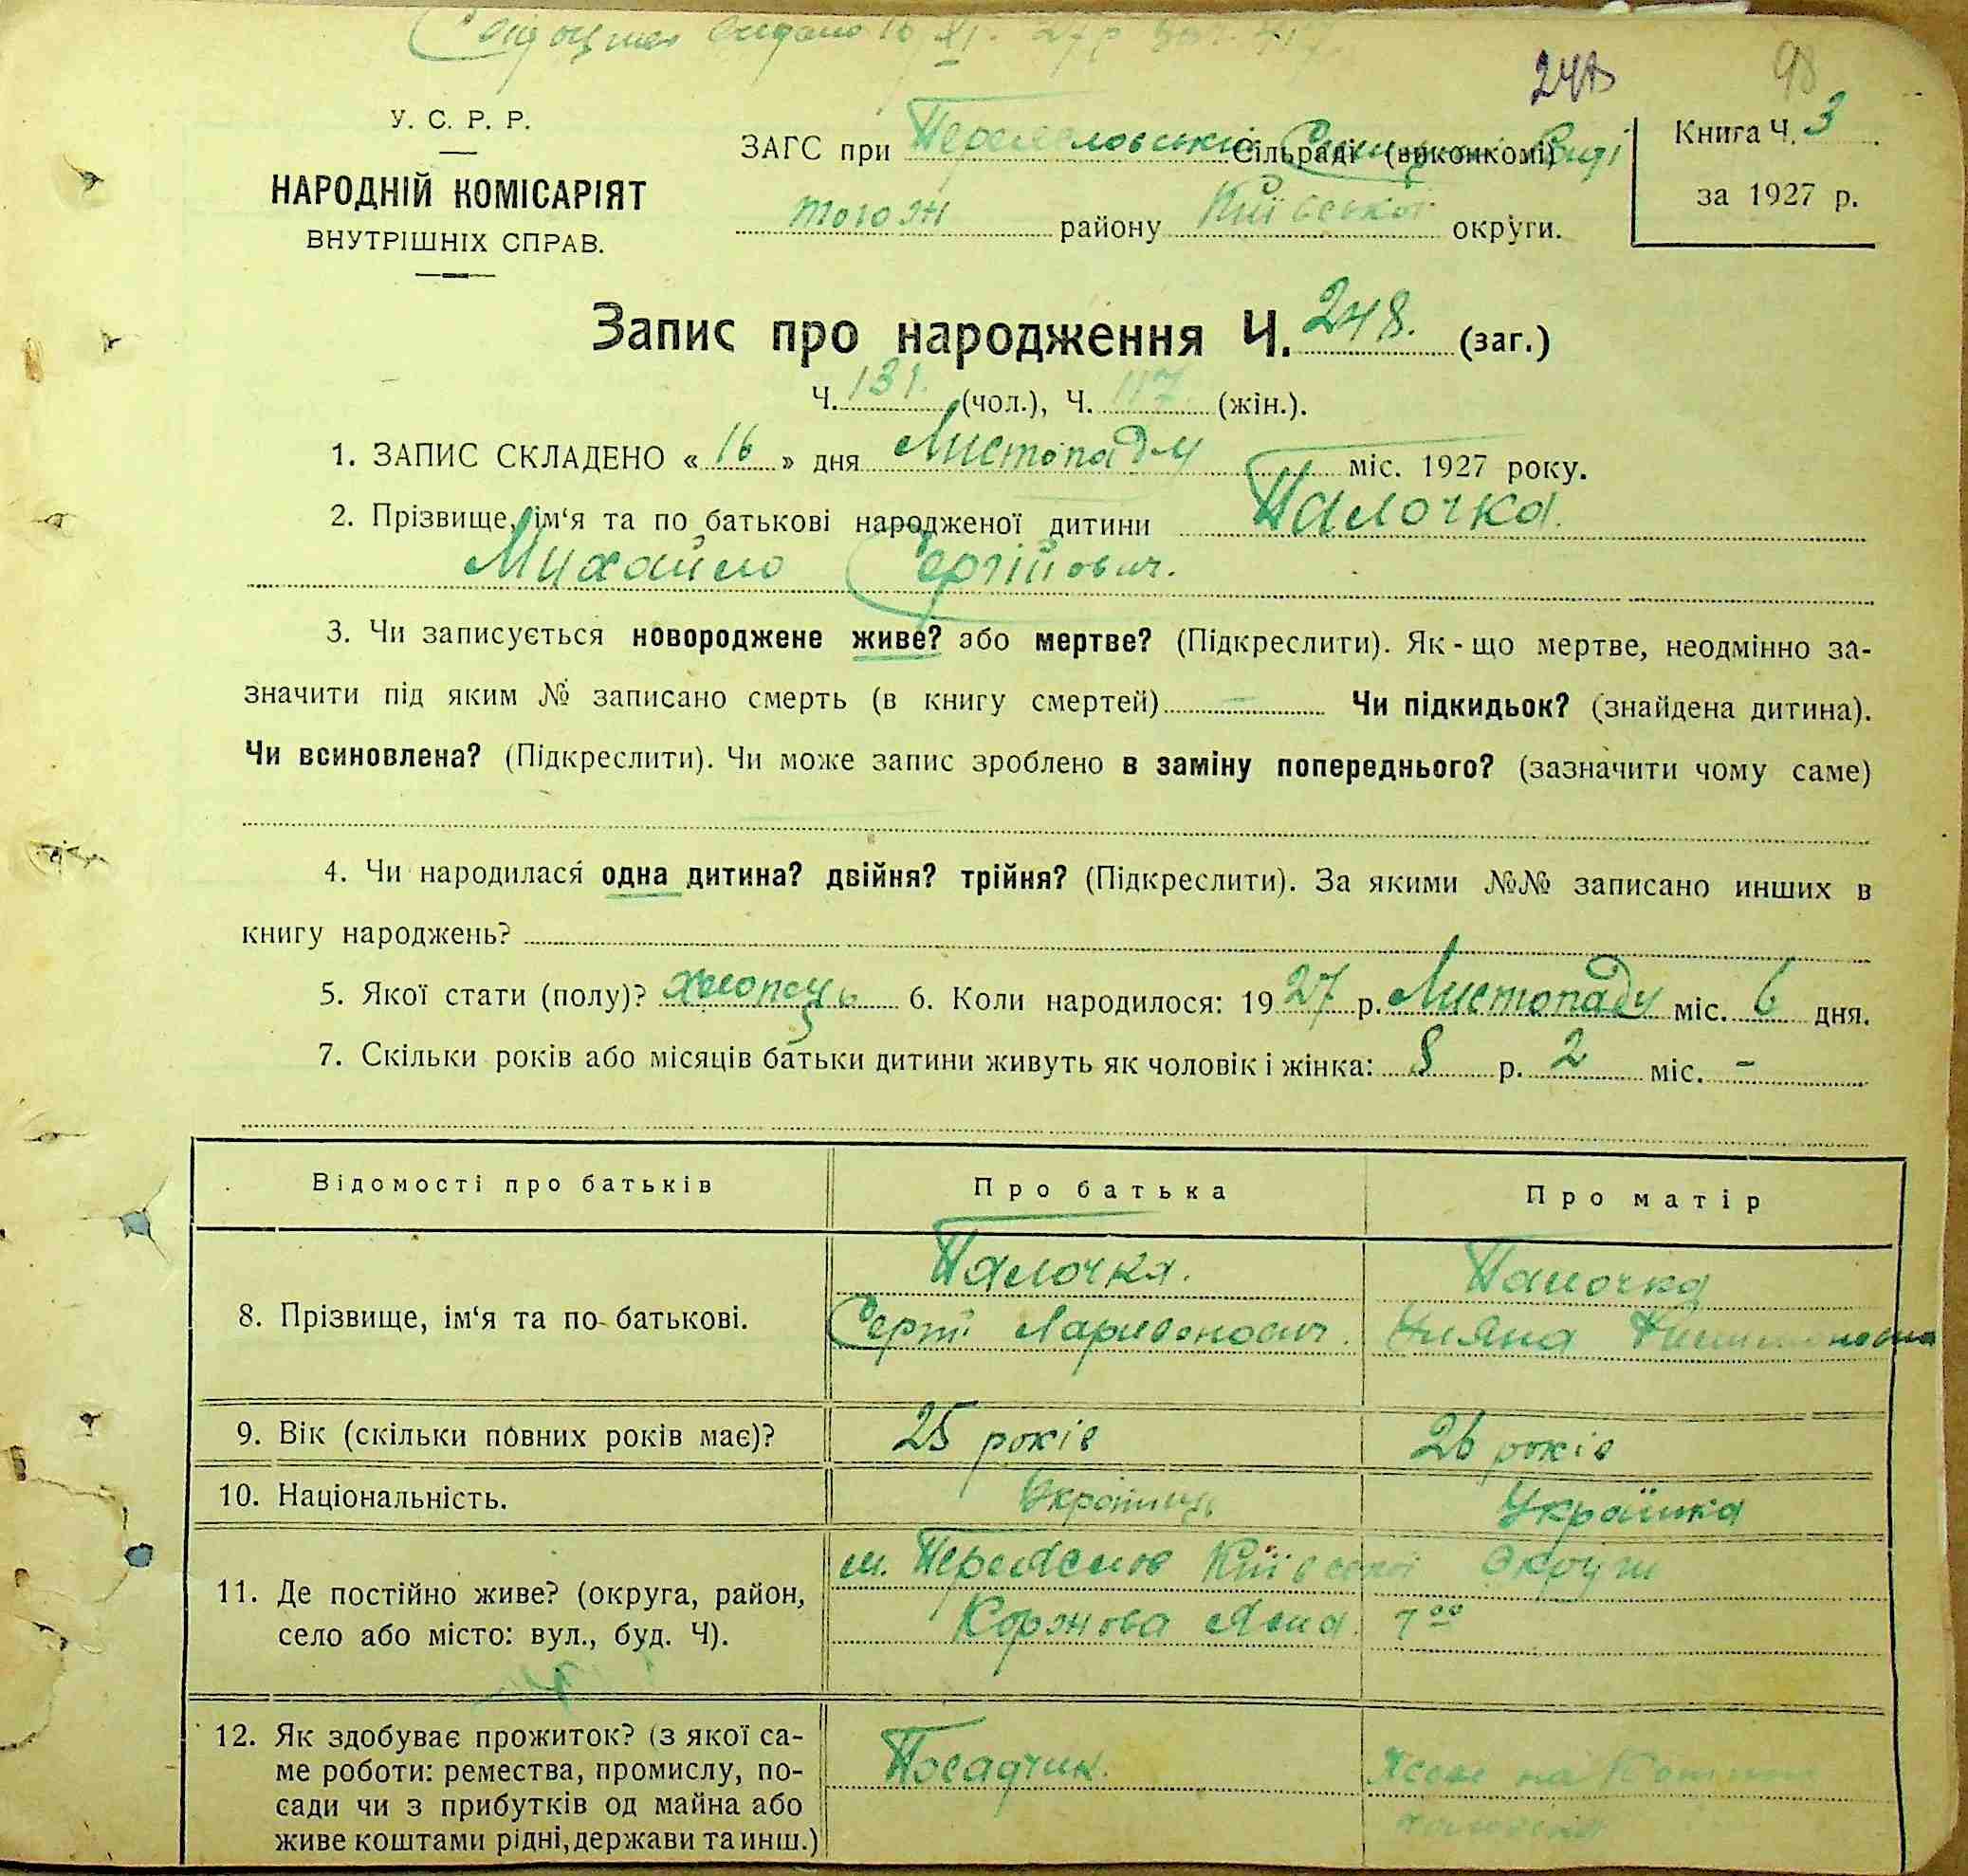 видано 16/XI. 27 р
248 98
У. С. Р. Р.
НАРОДНІЙ КОМІСАРІЯТ
ВНУТРІШНІХ СПРАВ.
ЗАГС при Сільраді (виконкомі)
тогож району Київської округи.
Книга Ч. 3
за 1927 р.
Запис про народження Ч. 248. (заг.)
Ч. 131. (чол.), Ч. 117. (жін.).
1. ЗАПИС СКЛАДЕНО « 16 » дня Листопаду міс. 1927 року.
2. Прізвище, ім‘я та по батькові народженої дитини Палочка.
Михайло Сергійович.
3. Чи записується новороджене живе? або мертве? (Підкреслити). Як-що мертве, неодмінно за-
значити під яким № записано смерть (в книгу смертей) — Чи підкидьок? (знайдена дитина).
Чи всиновлена? (Підкреслити). Чи може запис зроблено в заміну попереднього? (зазначити чому саме)
4. Чи народилася одна дитина? двійня? трійня? (Підкреслити). За якими №№ записано инших в
книгу народжень?
5. Якої стати (полу)? хлопець 6. Коли народилося: 1927 р. Листопаду міс. 6 дня.
7. Скільки років або місяців батьки дитини живуть як чоловік і жінка: 8 р. 2 міс. –
Відомості про батьків Про батька Про матір
8. Прізвище, ім‘я та по-батькові.
Палочка. Палочка
Сергій Ларивонович. Уляна
9. Вік (скільки повних років має)? 25 років 26 років
10. Національність. Українець Українка
11. Де постійно живе? (округа, район,
село або місто: вул., буд. Ч).
м. Переяслов Київської Округи
Коржова 7
12. Як здобуває прожиток? (з якої са-
ме роботи: ремества, промислу, по-
сади чи з прибутків од майна або
живе коштами рідні, держави та инш.)
Посадчик.
на